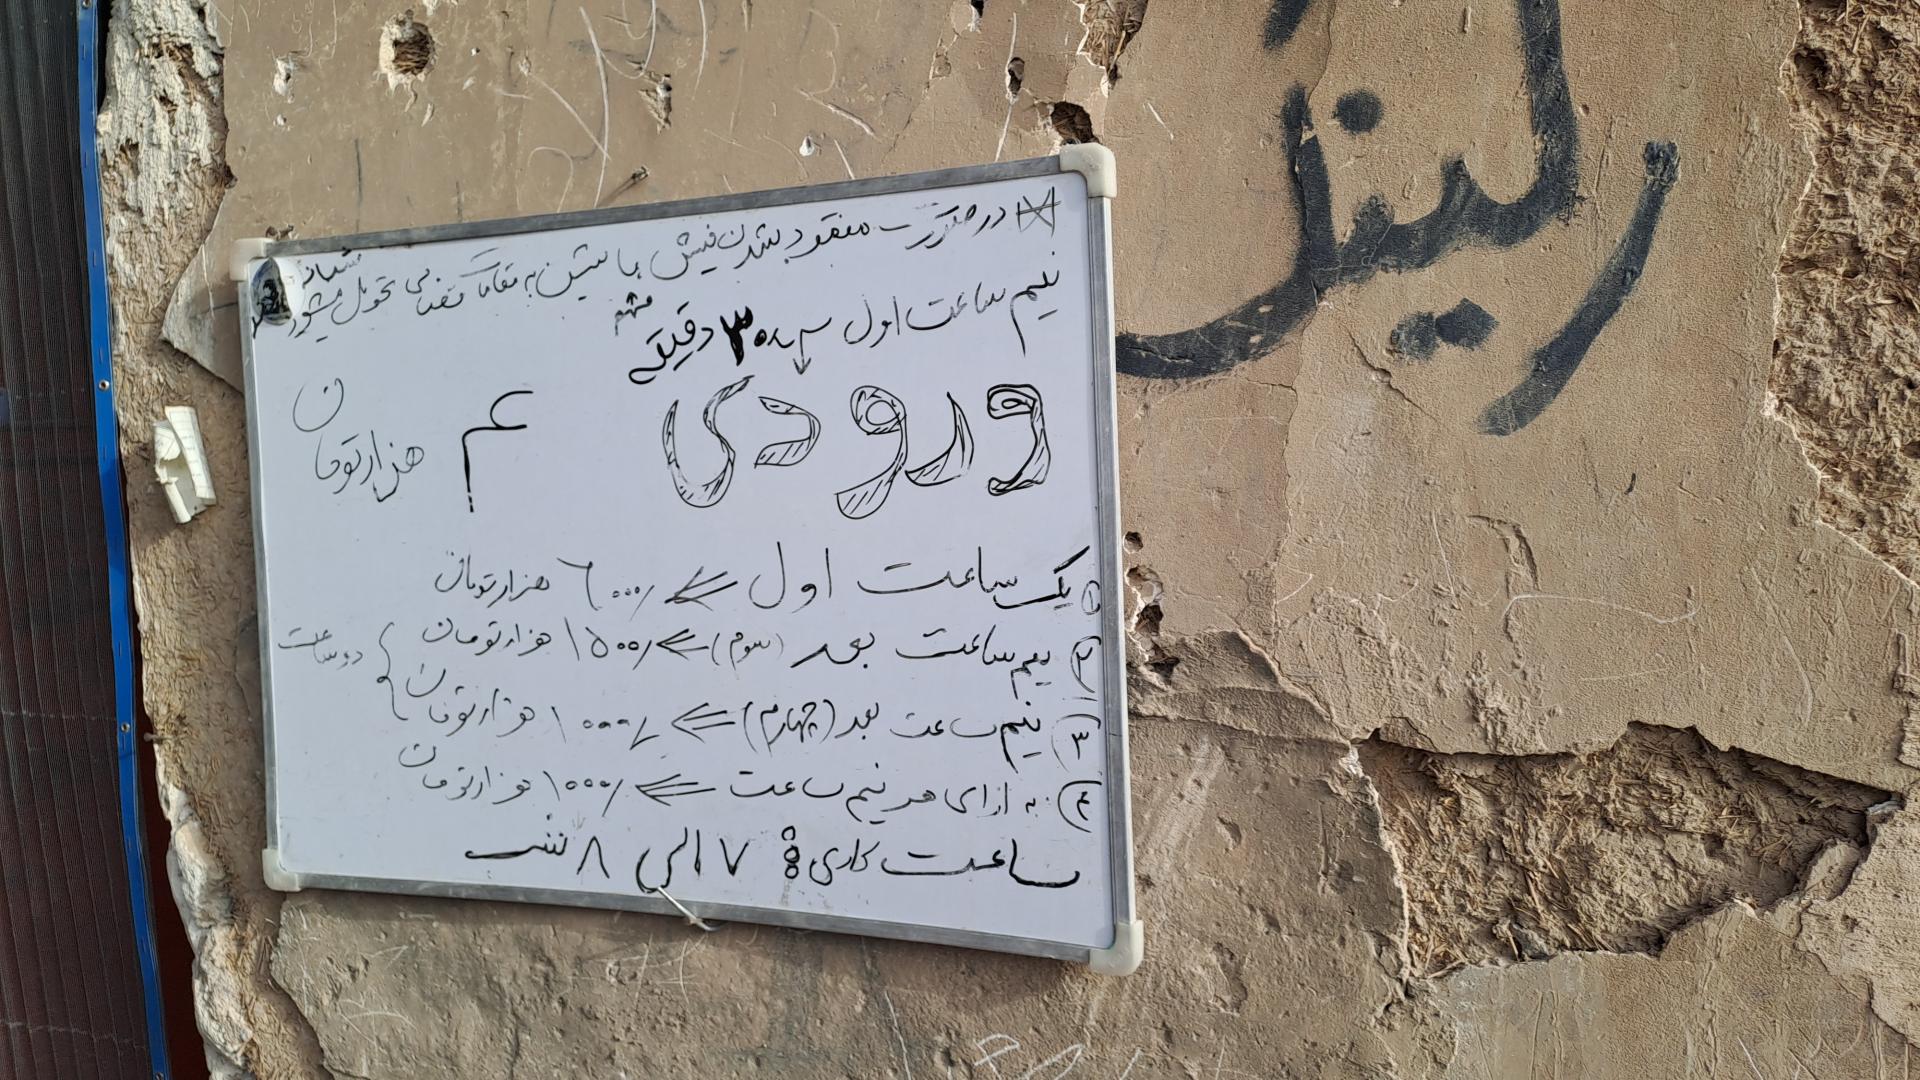 در صورت مفقود شدن فیش ماشین به مقامات قضایی تحویل میشود
نیم ساعت اول ۳۰ دقیقه
ورودی ۴ هزار تومان
۱ یک ساعت اول ⇐ ۶۰۰۰/ هزار تومان
۲) نیم ساعت بعد (سوم) ⇐ ۱۵۰۰/ هزار تومان
دو ساعت
۳) نیم ساعت بعد (چهارم) ⇐ ۱۰۰۰/ هزار تومان
۴) به ازای هر نیم ساعت ⇐ ۱۰۰۰/ هزار تومان
ساعت کاری: ۷ الی ۸ شب